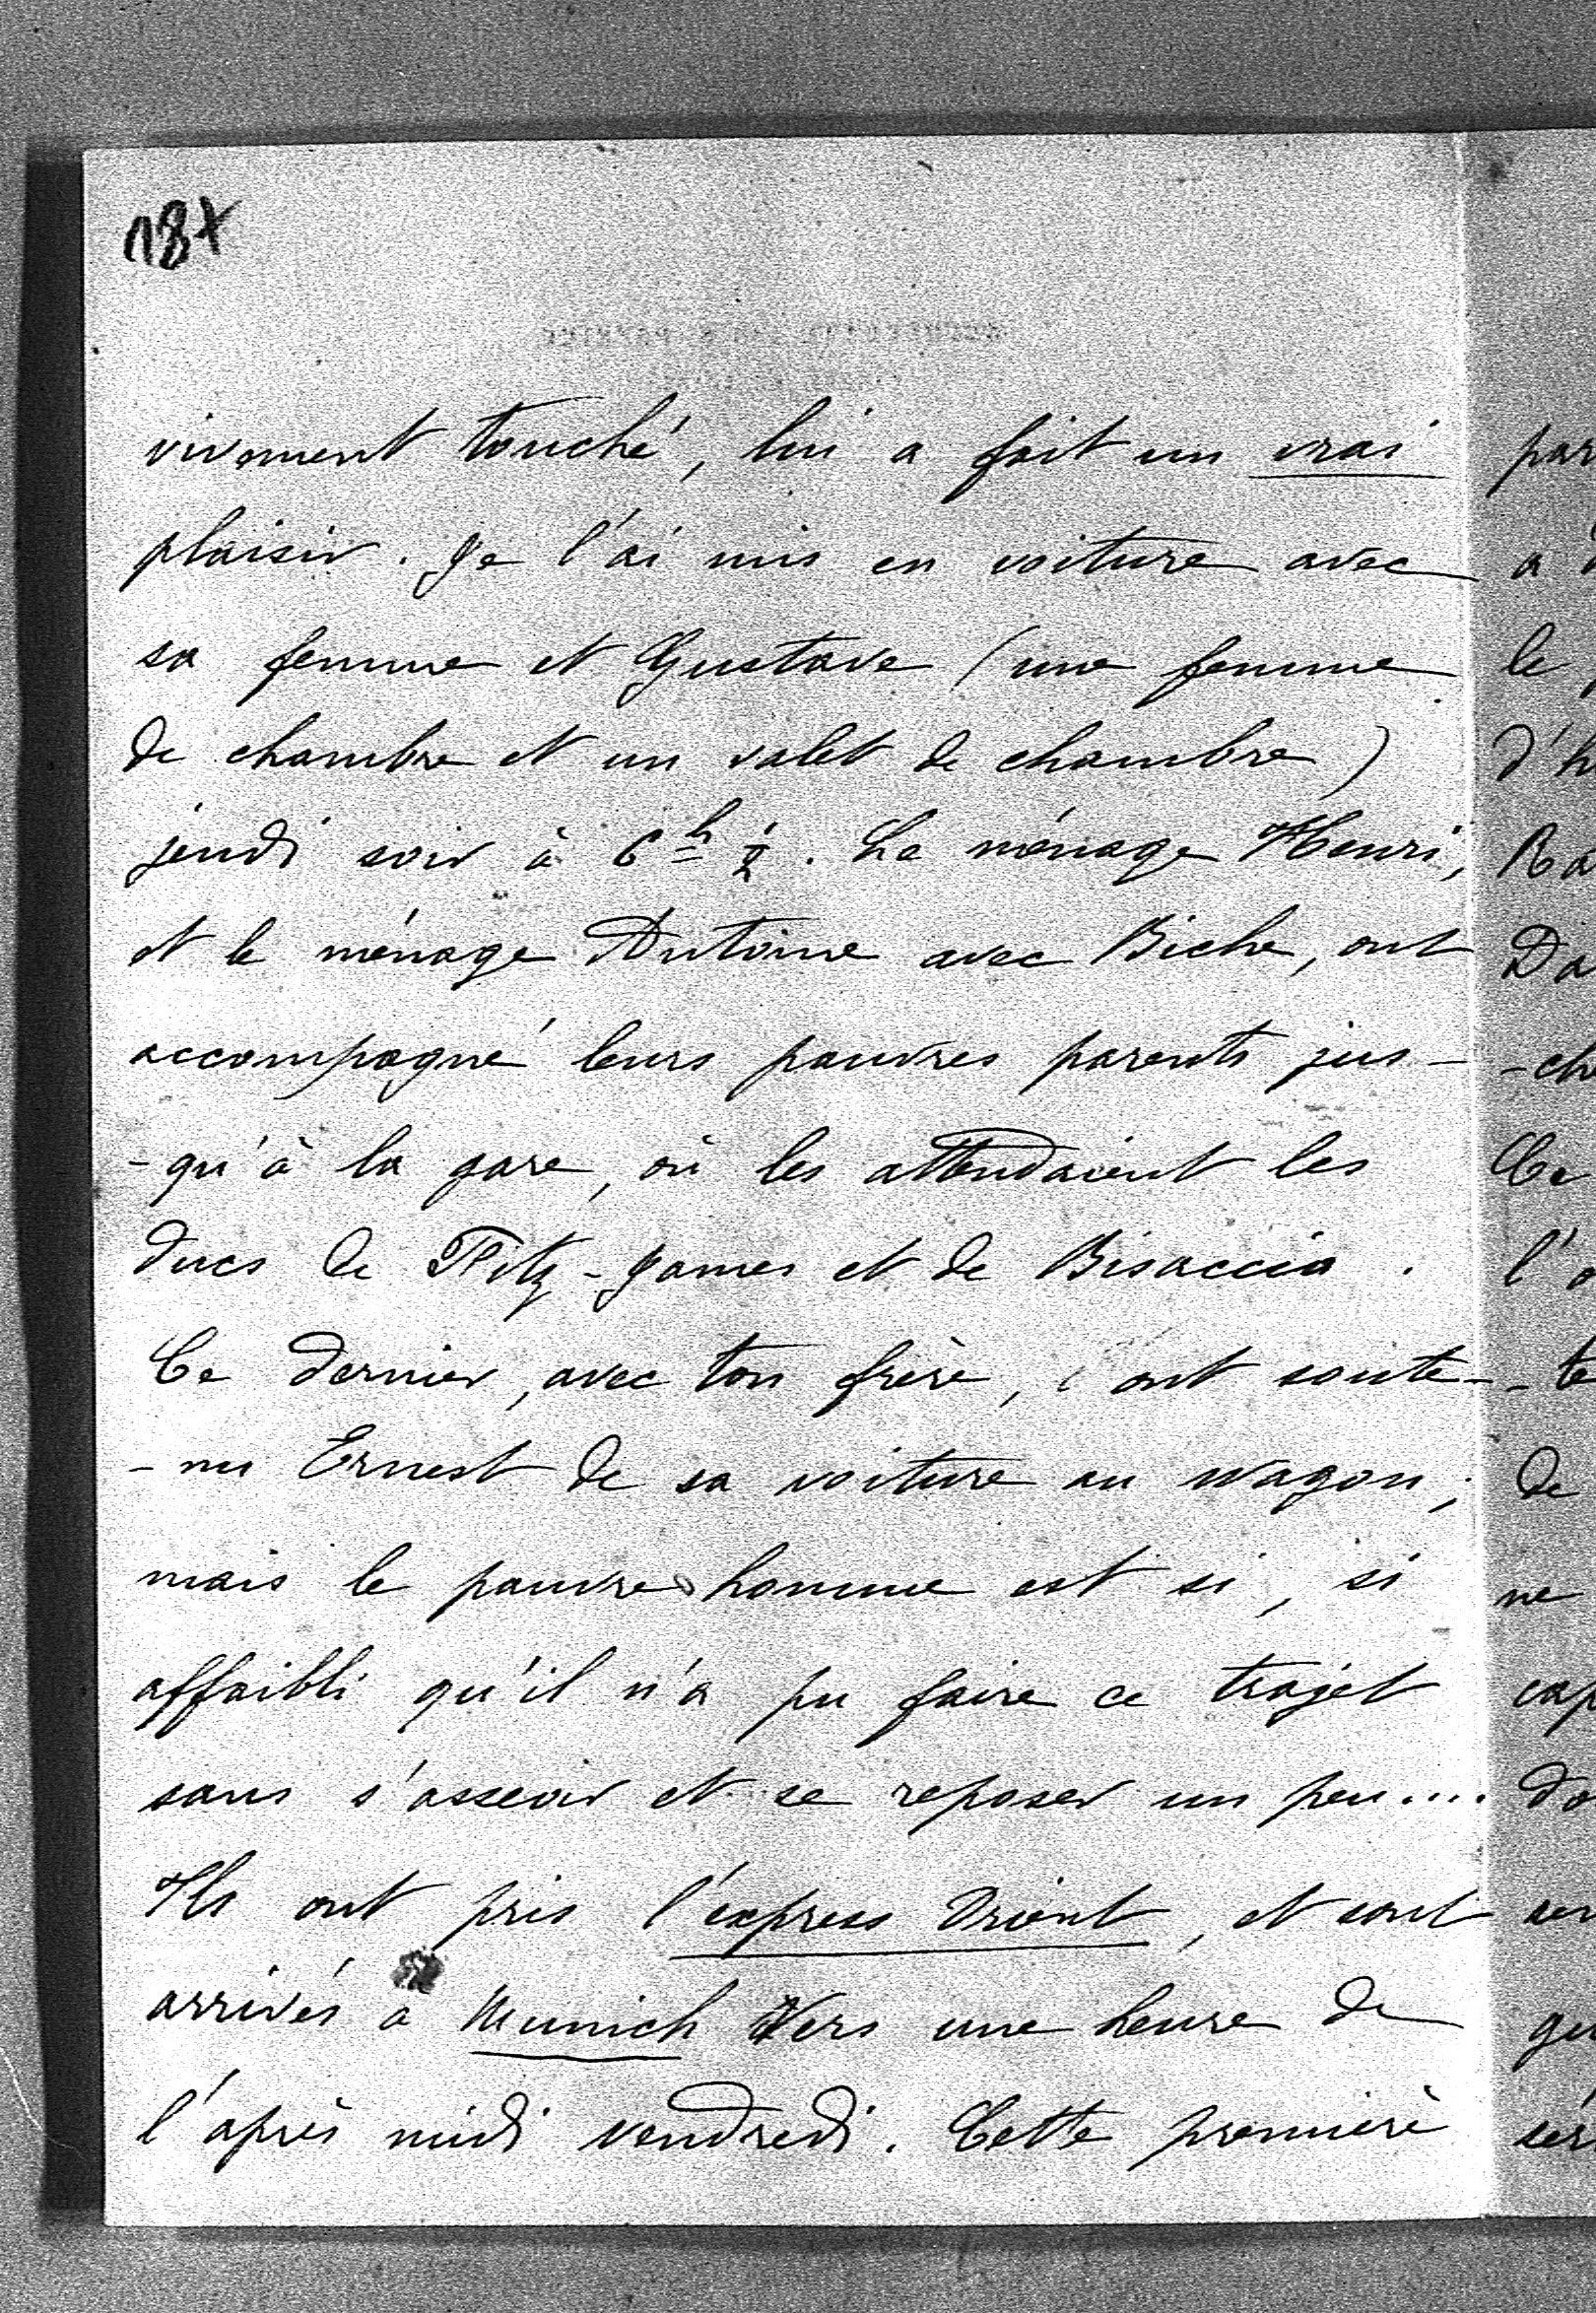 187
vivement touché, lui a fait un vrai
plaisir. Je l'ai mis en voiture avec
sa femme et Gustave (une femme
de chambre et un valet de chambre)
jeudi soir à 6h ½. Le ménage Henri,
et le ménage Antoine avec Biche, ont
accompagné leurs pauvres parents jus-
-qu'à la gare, où les attendaient les
ducs de Fitz-James et de Bisaccia.
Ce dernier, avec ton frère, ont soute-
-nu Ernest de sa voiture au wagon;
mais le pauvre homme est si, si
affaibli qu'il n'a pu faire ce trajet
sans s'asseoir et se reposer un peu....
Ils ont pris l'express Orient, et sont
arrivés à Munich Vers une heure de
l'après midi vendredi. Cette première
par
a
le
d'h
Ra
Da
-che
Ce
l'a
-te
de
ne
cap
do
ser
qu
sér